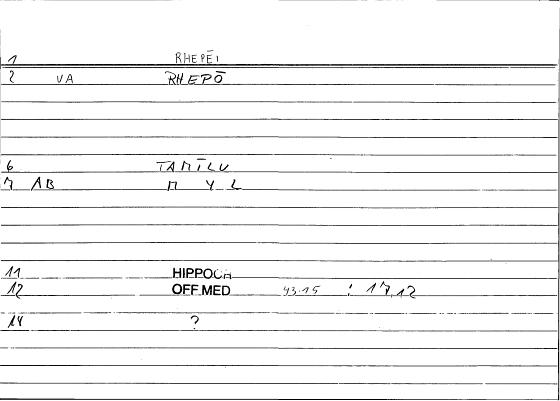 1 RHEPĒI
2 VA RHEPŌ
6 TAMĪLU
7 AB M Y L
11 HIPPOCH
12 OFF.MED 43.15 : 17,12
14 ?